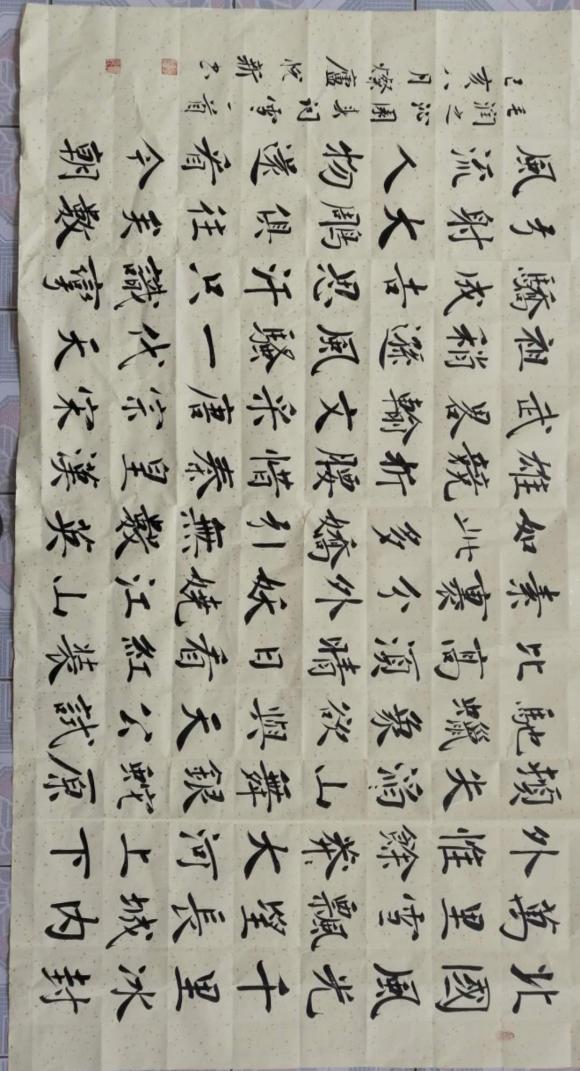 北國風光千里冰封
萬里雪飄望長城内
外惟餘莽大河上下
頓失滔山舞銀蛇原
馳蠟象欲與天公試
比高須晴日看紅裝
素裹分外妖嬈江山
如此多嬌引無數英
雄競折腰惜秦皇漢
武畧輸文采唐宗宋
祖稍遜風騷一代天
驕成吉思汗只識彎
弓射大鵰俱往矣數
風流人物還看今朝
毛润之沁園春詞雪一首
己亥八月燦廬悦新书